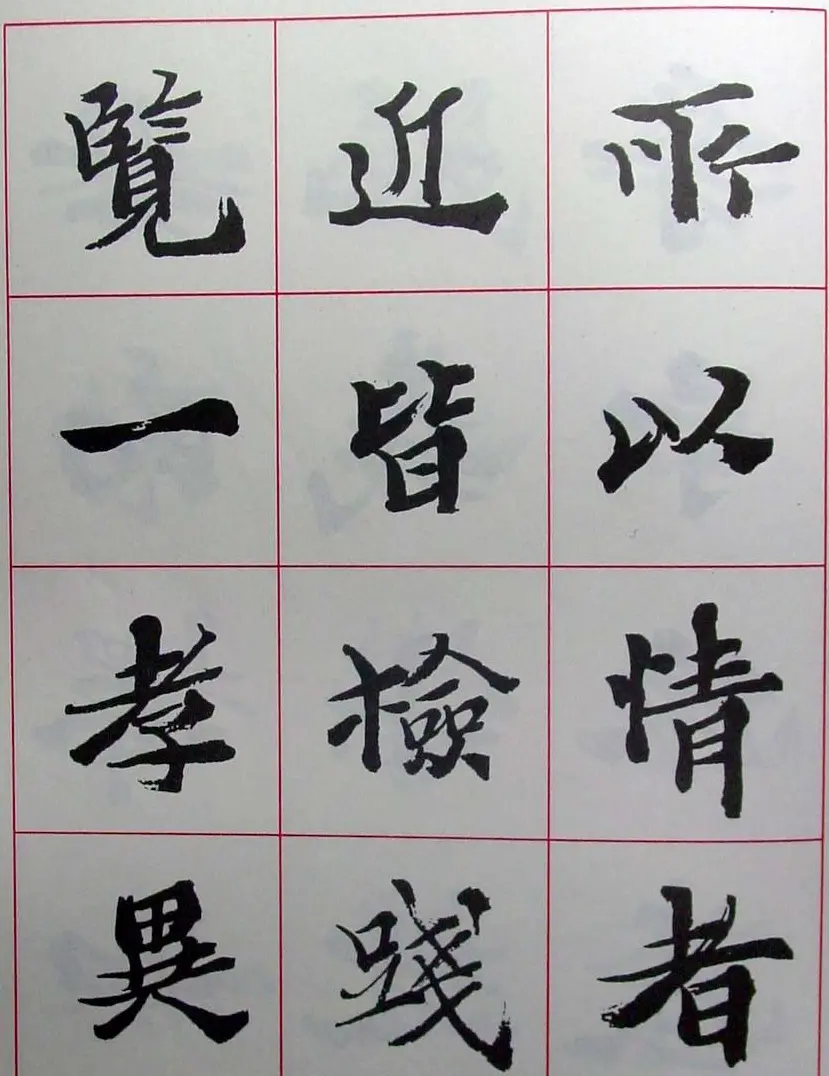 所以情者
近皆檢踐
覽一孝異